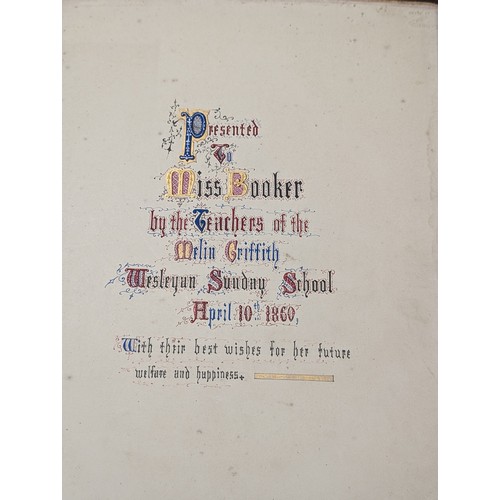 Presented
To
Miss Booker
by the Teachers of the
Melin Griffith
Wesleyan Sunday School
April 10th 1860,
With their best wishes for her future
welfare and happiness.